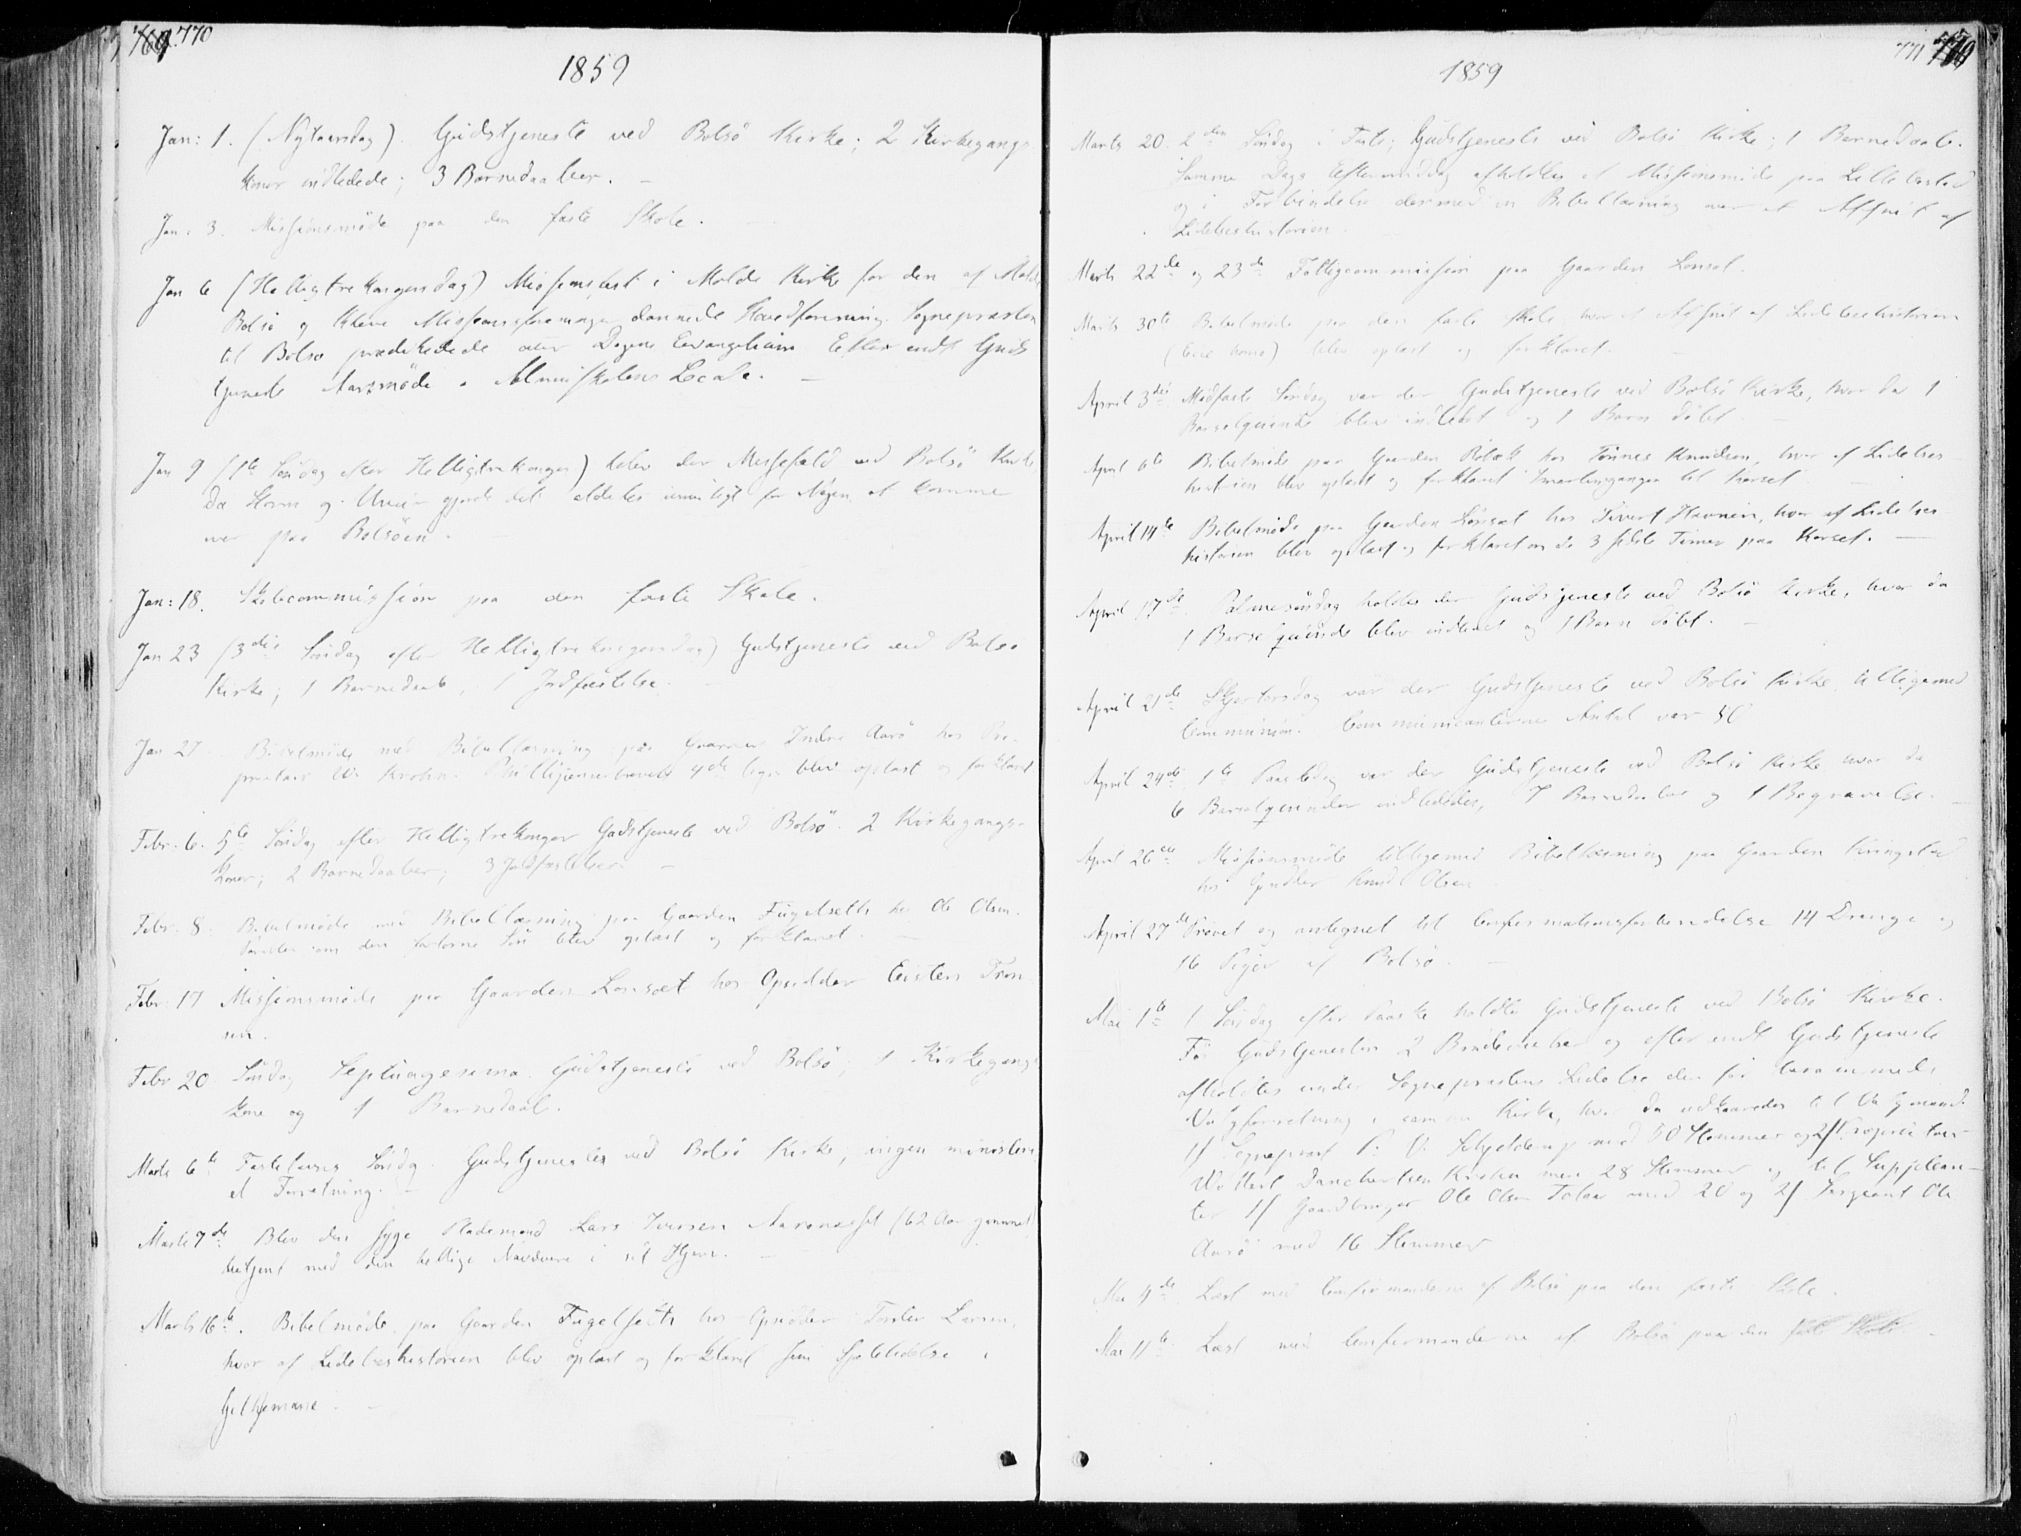 769 770
1859
Jan: 1. (Nytaarsdag). Gudstjeneste ved Bolsö Kirke; 2 Kirkegangs
koner indledede; 3 Barnedaaber. –
Jan: 3. Missionsmöde paa den faste Skole.
Jan 6 (Helligtrekongersdag) Missionsfest i Molde Kirke for den af Molde
Bolsö og Missionsforeninger dannede Hovedforening. Sognepræsten
til Bolsö prædikede over Dagens Evangelium. Efter endt Guds
tjeneste Aarsmöde i Almuskolens Locale. –
Jan 9 (1ste Söndag efter Helligtrekonger) blev der Messefald ved Bolsö Kirke
da Storm og Uveir gjorde det aldeles umuligt for Nogen at komme
over paa Bolsöen. –
Jan: 18. Skolecommission paa den faste Skole.
Jan 23 (3die Söndag efter Helligtrekongersdag) Gudstjeneste ved Bolsö
Kirke; 1 Barnedaab, 1 Jordfæstelse.
Jan 27. Bibelmöde med Bibellæsning paa Gaarden Indre Aarö hos Pro-
prietair W. Krohn. blev oplæst og forklaret
Febr. 6. 5te Söndag efter Helligtrekonger Gudstjeneste ved Bolsö. 2 Kirkegangs-
koner; 2 Barnedaaber; 3 Jordfæstelser. –
Febr. 8. Bibelmöde med Bibellæsning paa Gaarden Fugelseth hos Ole Olsen.
om den fortabte Sön blev oplæst og forklaret. –
Febr. 17 Missionsmöde paa Gaarden Lonsæt hos Opsidder Eisten Tron
sen.
Febr 20 Söndag Septuagesima. Gudstjeneste ved Bolsö. 1 Kirkegangs
kone og 1 Barnedaab.
Marts 6te Fastelavns Söndag. Gudstjeneste ved Bolsö Kirke, ingen ministeri
el Forretning. –
Marts 7de Blev den syge Pladsmand Lars Iversen (62 Aar gammel)
betjent med den hellige Nadvere i sit Hjem. –
Marts 16te. Bibelmöde paa Gaarden Fugelseth hos Opsidder Larsen,
hvor af Lidelseshistorien blev oplæst og forklaret Jesu Sjælelidelse i
Gethsemane. –
771 770
1859
Marts 20. 2den Söndag i Faste; Gudstjeneste ved Bolsö Kirke; 1 Barnedaab.
Samme Dags Eftermiddag afholdtes et Missionsmöde paa
og i Forbindelse dermed en Bibellæsning over et Afsnit af
Lidelseshistorien.
Marts 22de og 23de Fattigcommission paa Gaarden Lonsæt.
Marts 30te Bibelmöde paa den faste Skole, hvor et Afsnit af Lidelseshistorien
(Ecce homo) blev oplæst og forklaret.
April 3die Midfaste Söndag var der Gudstjeneste ved Bolsö Kirke, hvor da 1
Barselqvinde blev indledet og 1 Barn döbt.
April 6te Bibelmöde paa Gaarden hos Tönnes Knudsen, hvor af Lidelses-
historien blev oplæst og forklaret til Korset. –
April 14de Bibelmöde paa Gaarden Lönsæt hos Sivert, hvor af Lidelses-
historien blev oplæst og forklaret om de 3 sidste Timer paa Korset. –
April 17de Palmesöndag holdtes der Gudstjeneste ved Bolsö Kirke, hvor da
1 Barselqvinde blev indledet og 1 Barn döbt. –
April 21de Skjertorsdag var der Gudstjeneste ved Bolsö Kirke tilligemed
Communion. Communicanternes Antal var 50
April 24de 1ste Paaskedag var der Gudstjeneste ved Bolsö Kirke hvor da
6 Barselqvinder indlededes, 7 Barnedaaber og 1 Begravelse. –
April 26de Missionsmöde tilligemed Bibellæsning paa Gaarden Kringstad
hos Opsidder Knud Olsen
April 27de Prövet og antegnet til Confirmationsforberedelse 14 Drenge og
16 Piger af Bolsö. –
Mai 1ste 1 Söndag efter Paaske holdtes Gudstjeneste ved Bolsö Kirke.
Før Gudstjenesten 2 Brudevielser og efter endt Gudstjeneste
afholdtes under Sognepræstens Ledelse
Valgforretning i samme Kirke, hvor da udkaaredes til Valgmænd
1/ Sognepræst P. V. med 30 Stemmer og 2/ Proprietair
Danchertsen Krohn med 28 Stemmer og til Supplean-
ter 1/ Gaardbruger Ole Olsen med 20 og 2/ Sergeant Ole
Aarö med 16 Stemmer
Mai 4de Læst med Confirmanderne af Bolsö paa den faste Skole.
Mai 11te Læst med Confirmanderne af Bolsö paa den faste Skole –